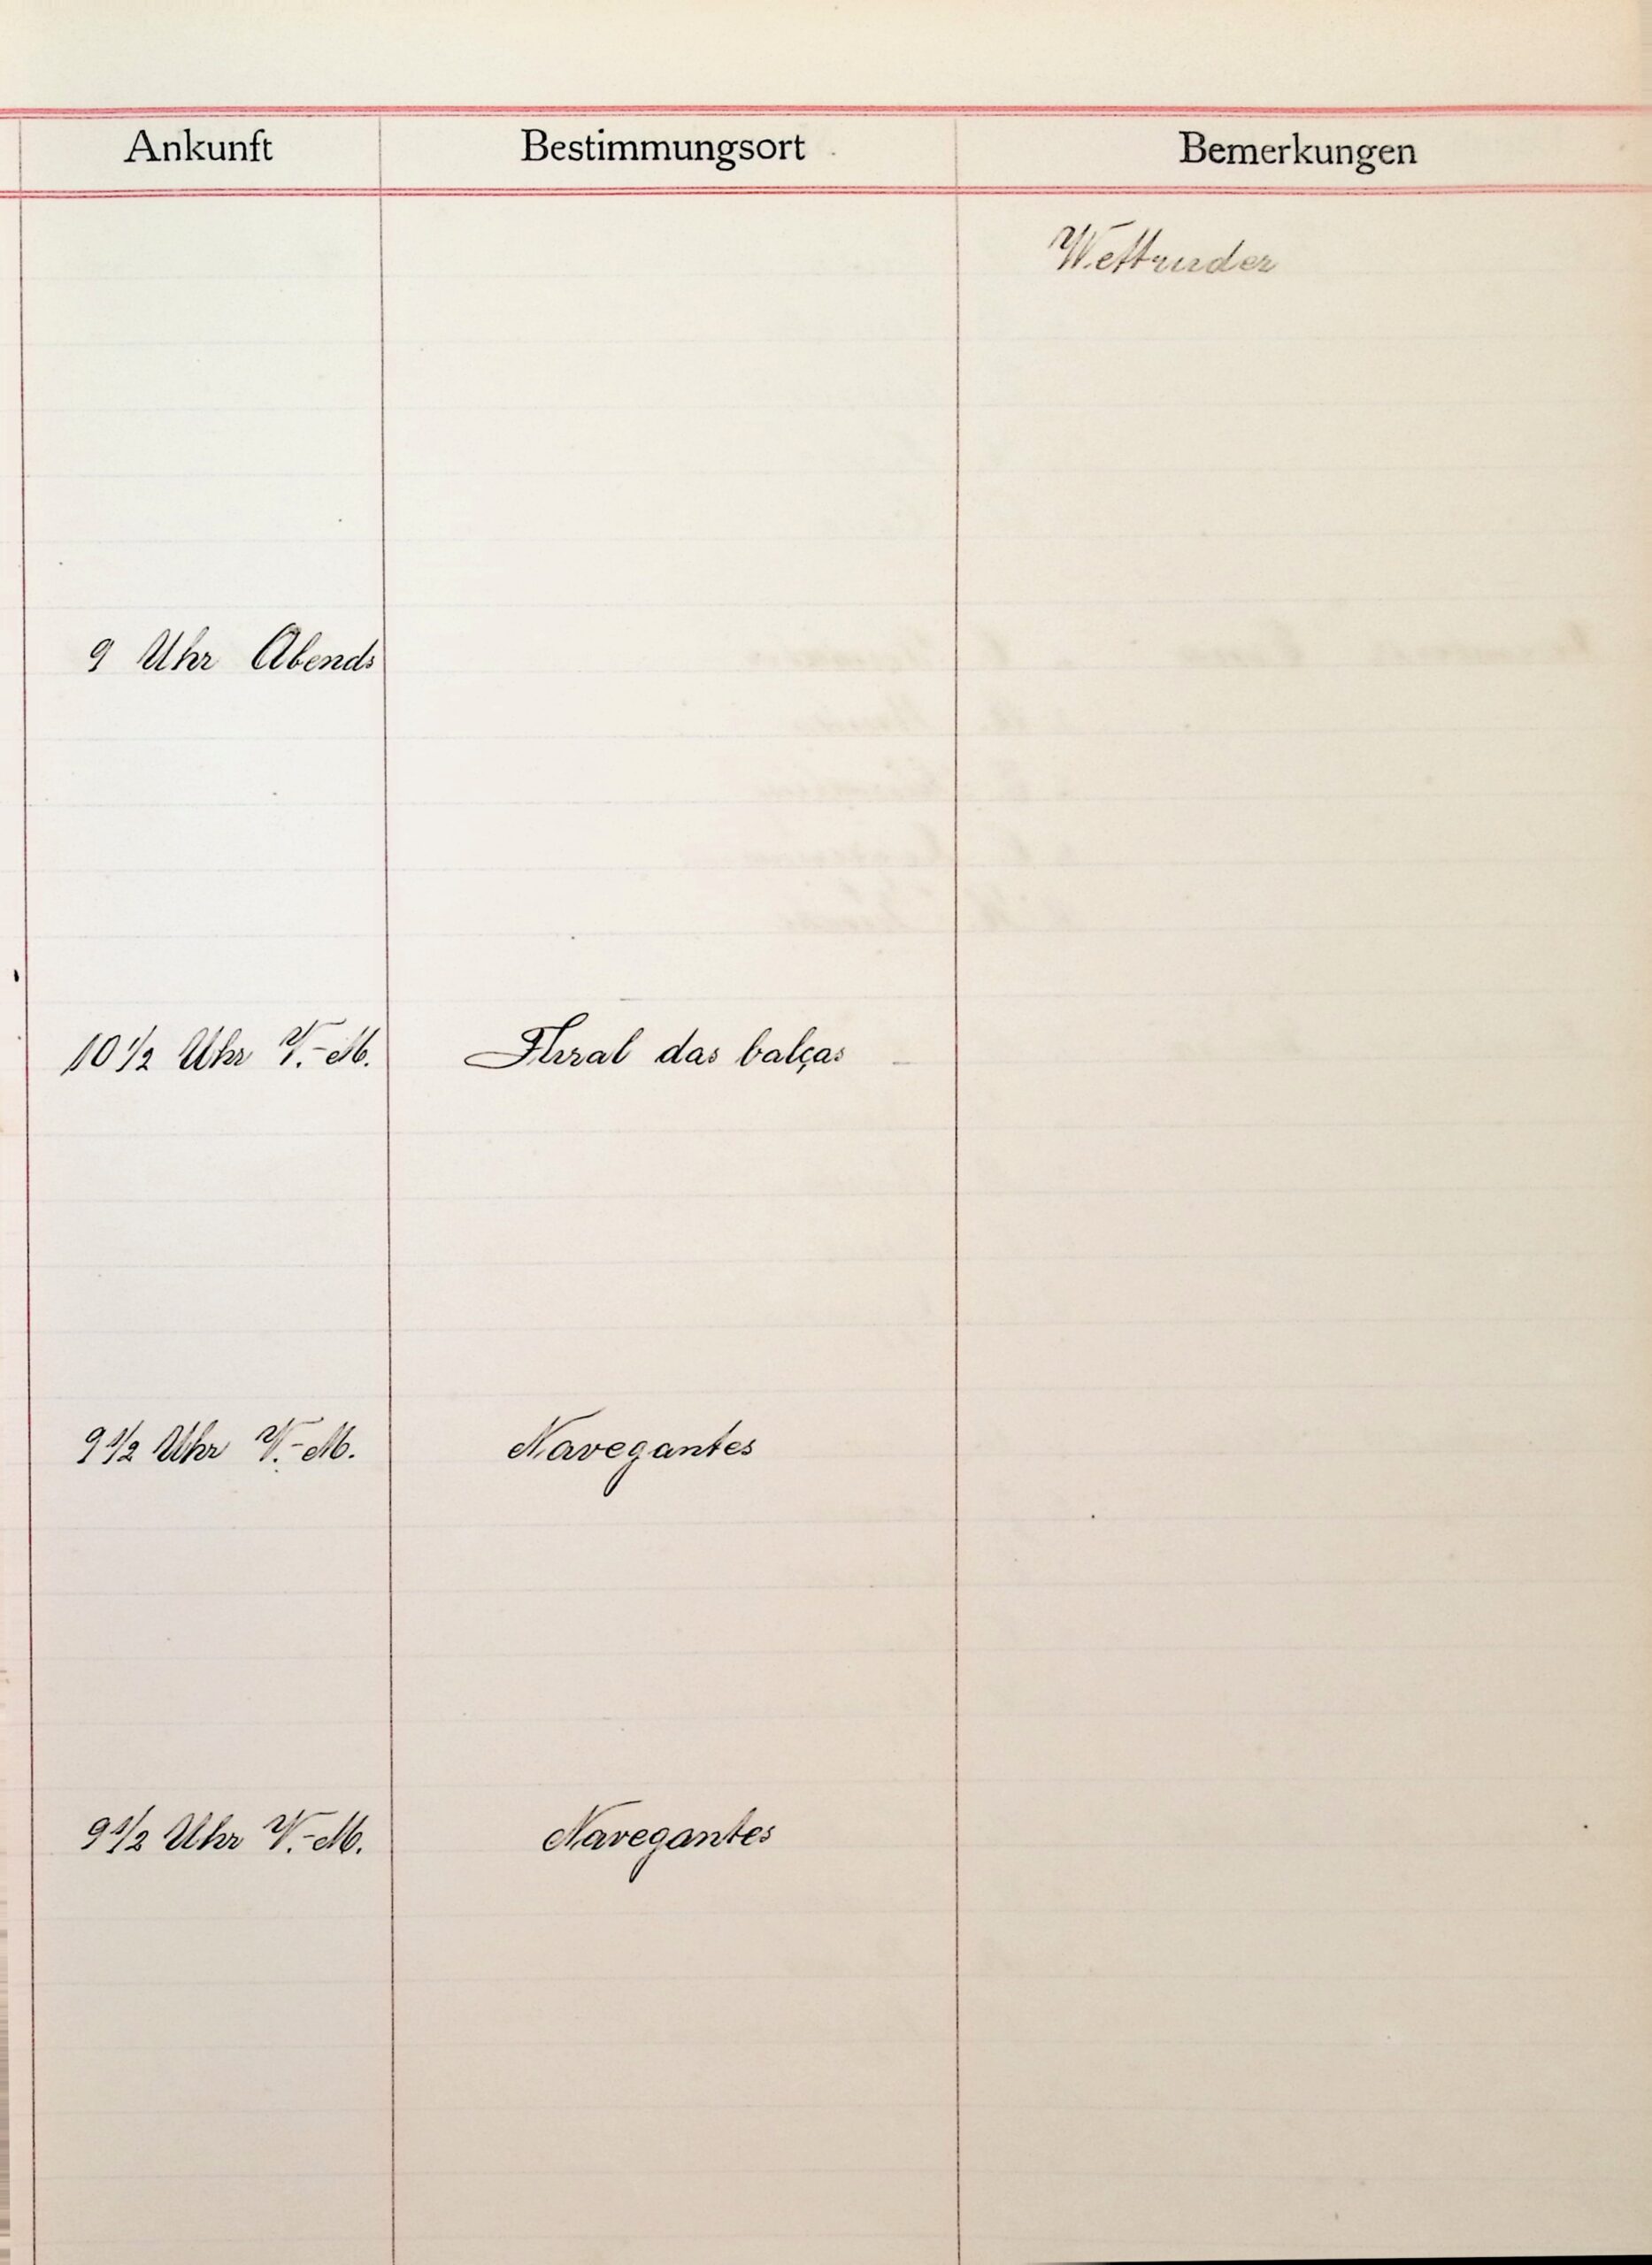 Ankunft Bestimmungsort Bemerkungen
Wettruder
9 Uhr Abends
10 1/2 Uhr V.-M. das balças
9 1/2 Uhr V.-M. Navegantes
9 1/2 Uhr V.-M. Navegantes